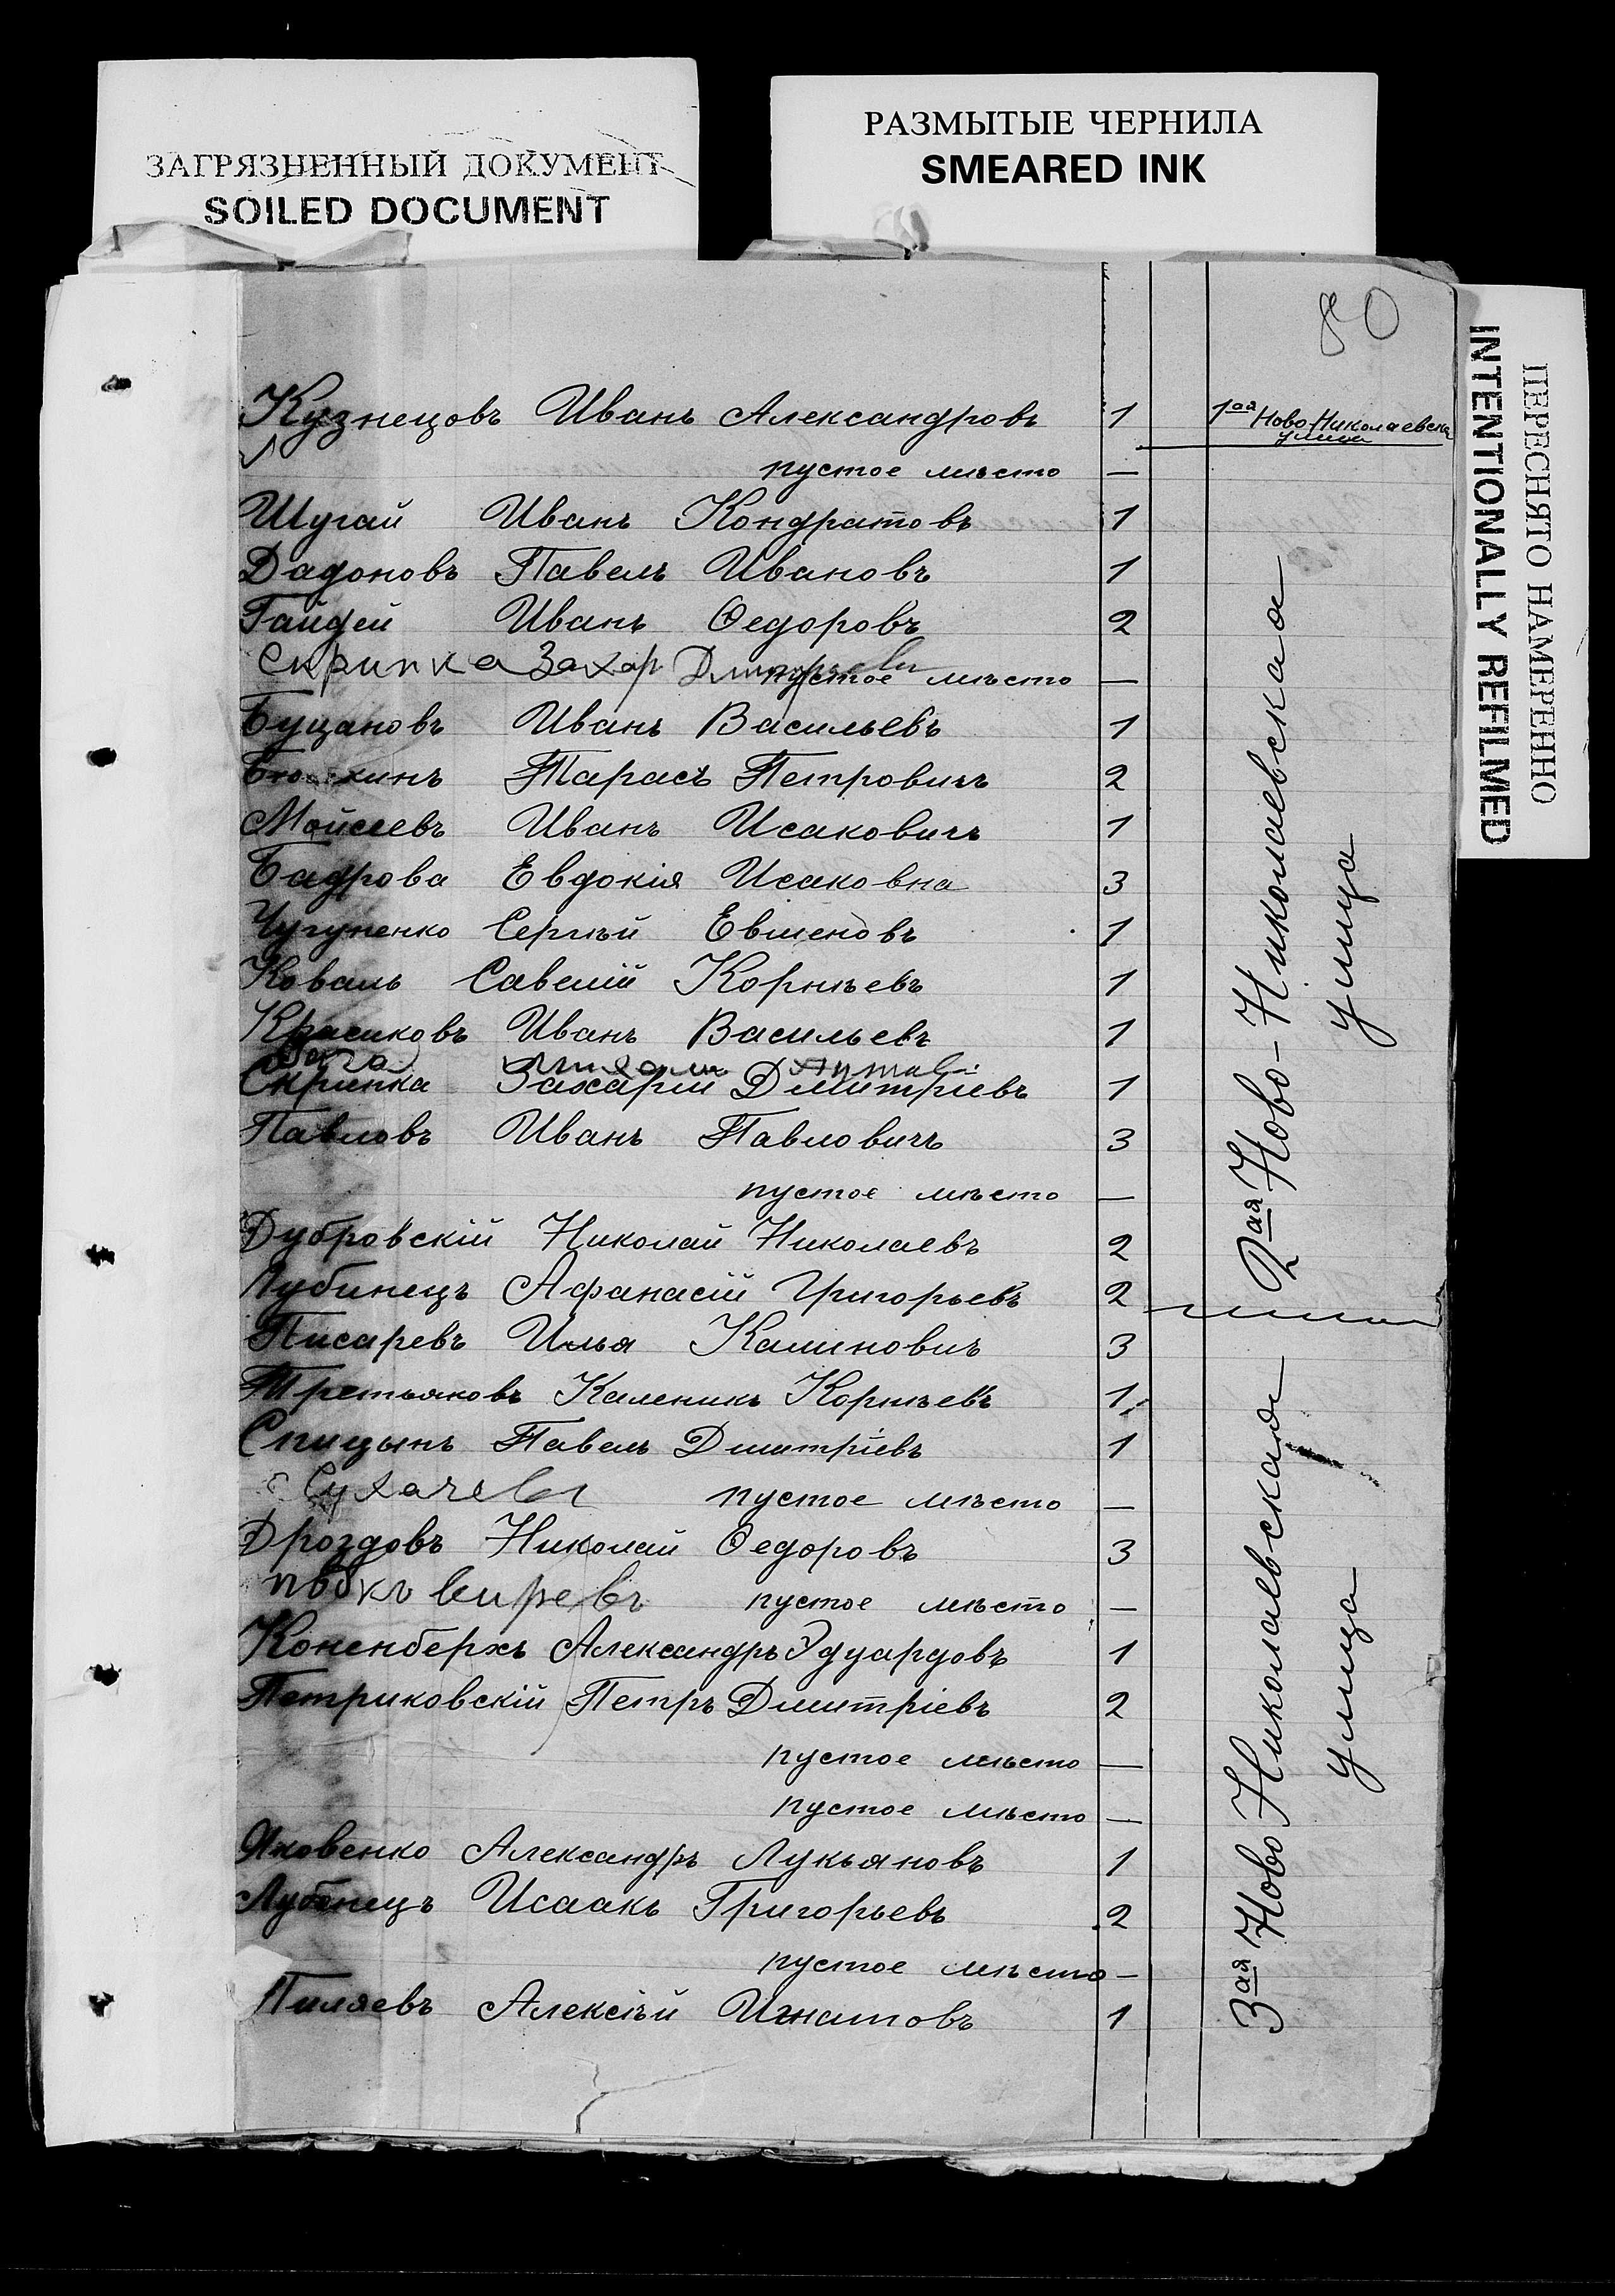 ЗАГРЯЗНЕННЫЙ ДОКУМЕНТ
SOILED DOCUMENT
РАЗМЫТЫЕ ЧЕРНИЛА
SMEARED INK
ПЕРЕСНЯТО НАМЕРЕННО
INTENTIONALLY REFILMED
80
Кузнецовъ Иванъ Александровъ 1 1ая Ново-Николаевская
улица
пустое мѣсто —
Шугай Иванъ Кондратовъ 1
Дадоновъ Павелъ Ивановъ 1
Гайдей Иванъ Ѳедоровъ 2
Скрипка Захар
пустое мѣсто —
Буцановъ Иванъ Васильевъ 1
Тарасъ Петровичъ 2
Мойсеевъ Иванъ Исаковичъ 1
Бадрова Евдокія Исаковна 3
Чугуненко Сергѣй Евменовъ 1
Коваль Савелій Корнѣевъ 1
Красиковъ Иванъ Васильевъ 1
Скрипка Захарій Дмитріевъ 1
Павловъ Иванъ Павловичъ 3
пустое мѣсто —
Дубровскій Николай Николаевъ 2
2ая Ново-Николаевская
улица
Лубинецъ Афанасій Григорьевъ 2
Писаревъ Илья Калиновичъ 3
Третьяковъ Каленикъ Корнѣевъ 1
Спицынъ Павелъ Дмитріевъ 1
Сухачевъ пустое мѣсто —
Дроздовъ Николай Ѳедоровъ 3
пустое мѣсто —
Коненберхъ Александръ Эдуардовъ 1
Петриковскій Петръ Дмитріевъ 2
пустое мѣсто —
пустое мѣсто —
Яковенко Александръ Лукьяновъ 1
Лубенецъ Исаакъ Григорьевъ 2
пустое мѣсто —
Пиляевъ Алексѣй Игнатовъ 1
3ая Ново Николаевская
улица